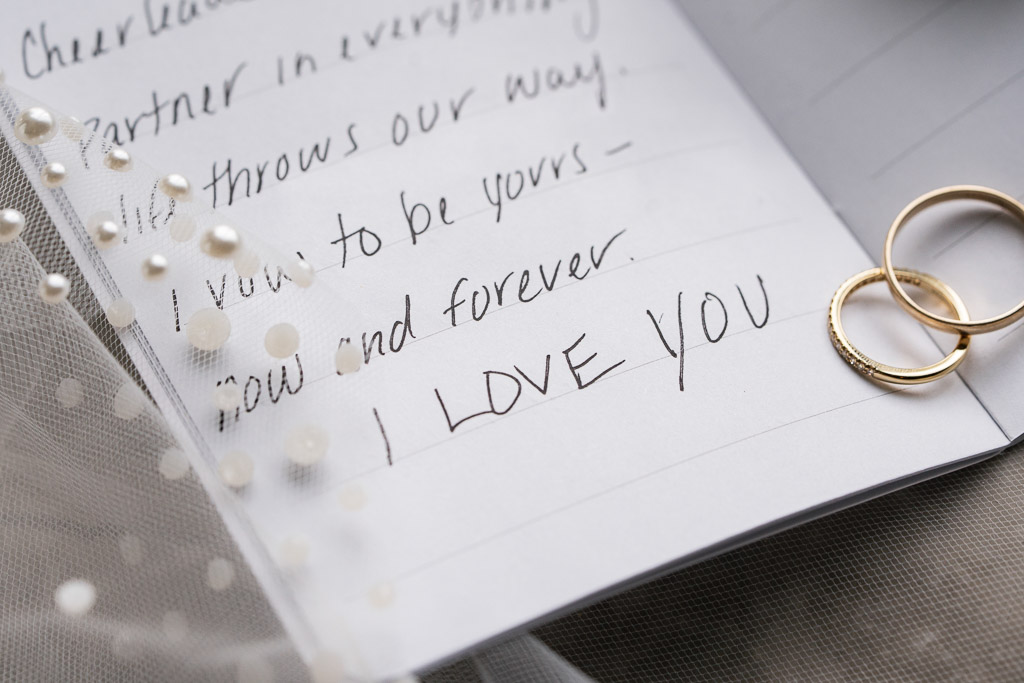 Cheerleader
Partner in everything
life throws our way.
I vow to be yours –
now and forever.
I LOVE YOU